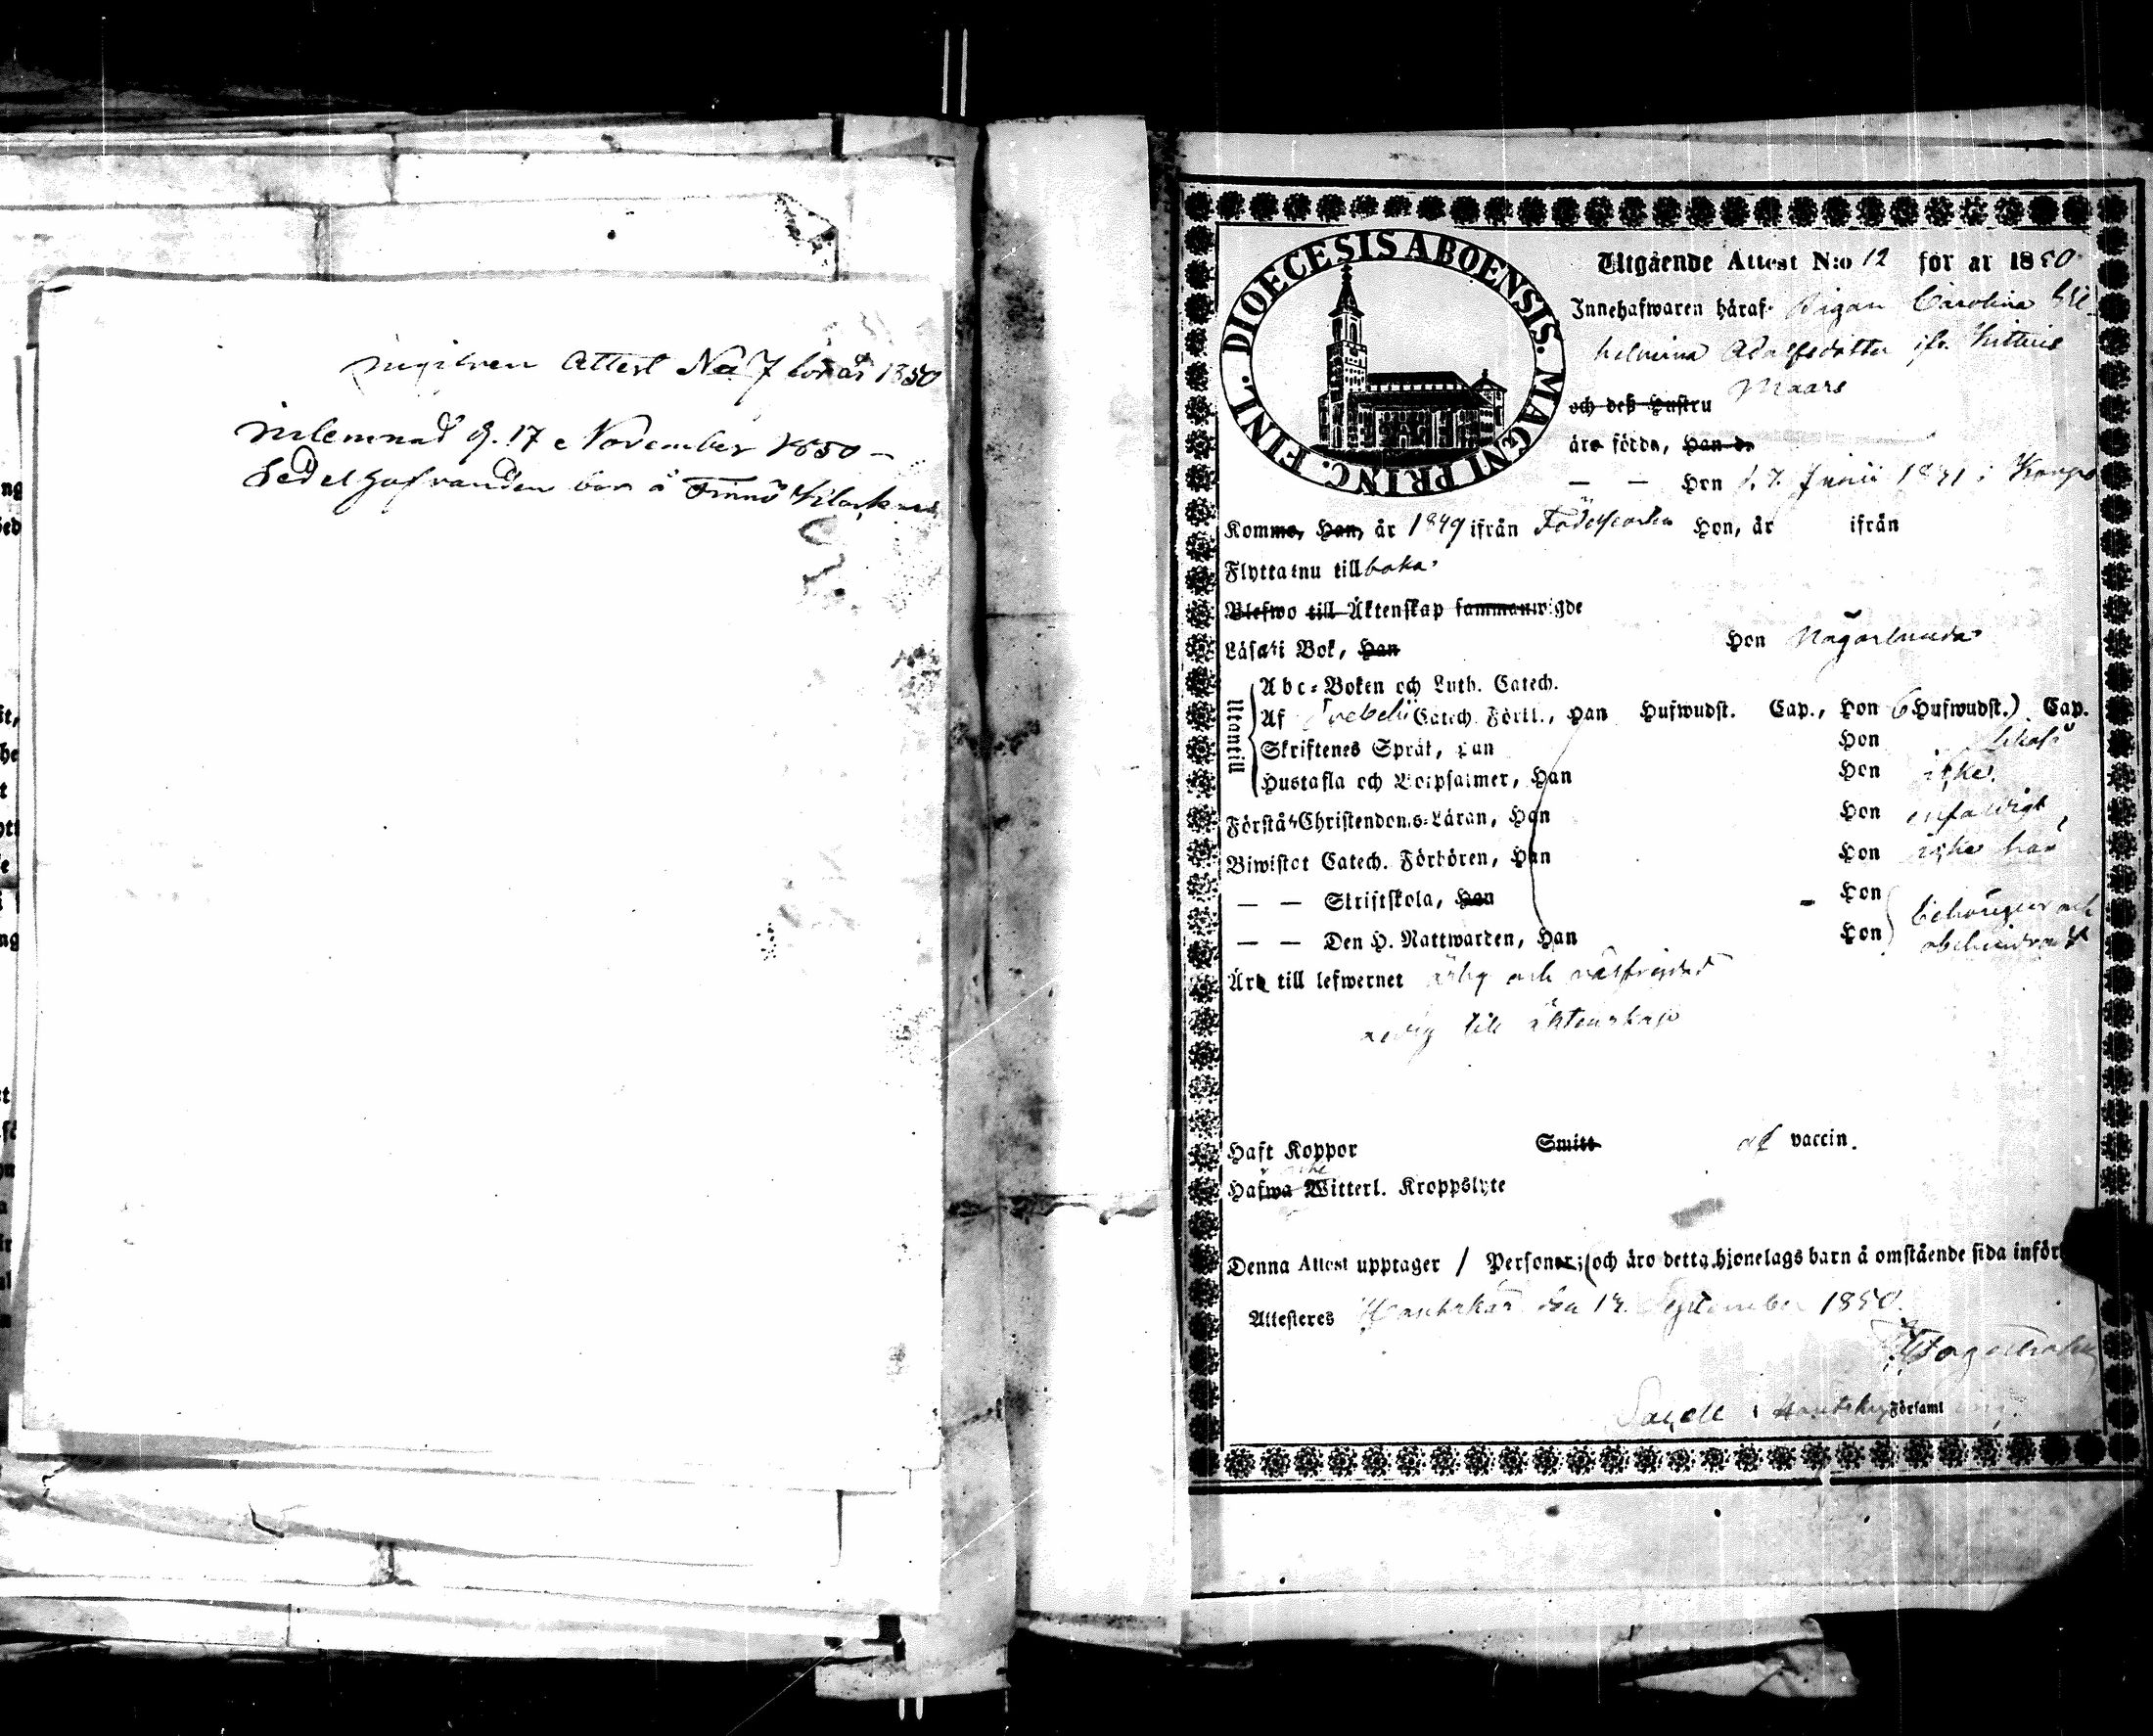 Attest No 7 för år 1850
Inlemnad d. 17 November 1850 –
Sedelhafvanden bor å Finnö Klockars
DIOECESIS ABOENSIS. MAGNI PRINC. FINL.
Utgående Attest N:o 12 för år 1850
Innehafwaren häraf Pigan Carolina Wil-
helmina Adolfsdotter ifr. Kittuis
Maars
och deß Hustru
äro födda, Han d.
— — Hon d. 7. Junii 1831 i Korpo
Kommo, Han, år 1849 ifrån Födelseorten Hon, år ifrån
Flytta nu tillbaka.
Blefwo till Äktenskap sammanwigde
Läsa i Bok, Han Hon Någorlunda
Utantill
Abc-Boken och Luth. Catech.
Af Svebelii Catech. Förkl., Han Hufwudst. Cap., Hon 6 Hufwudst. Cap.
Skriftenes Språk, Han Hon
Hustafla och Botpsalmer, Han Hon icke.
Förstå Christendoms-Läran, Han Hon enfaldigt
Biwistat Catech. Förhören, Han Hon icke här
— — Skriftskola, Han Hon behörigen och
— — Den H. Nattwarden, Han Hon obehindradt
Äro till lefwernet ärlig och välfrejdad
ledig till äktenskap
Haft Koppor Smitt af vaccin.
icke
Hafwa Witterl. Kroppslyte
Denna Attest upptager 1 Personer; (och äro detta hjonelags barn å omstående sida införd
Attesteres Houtskär den 14. September 1850.
Sacell. i Houtskär Församling.